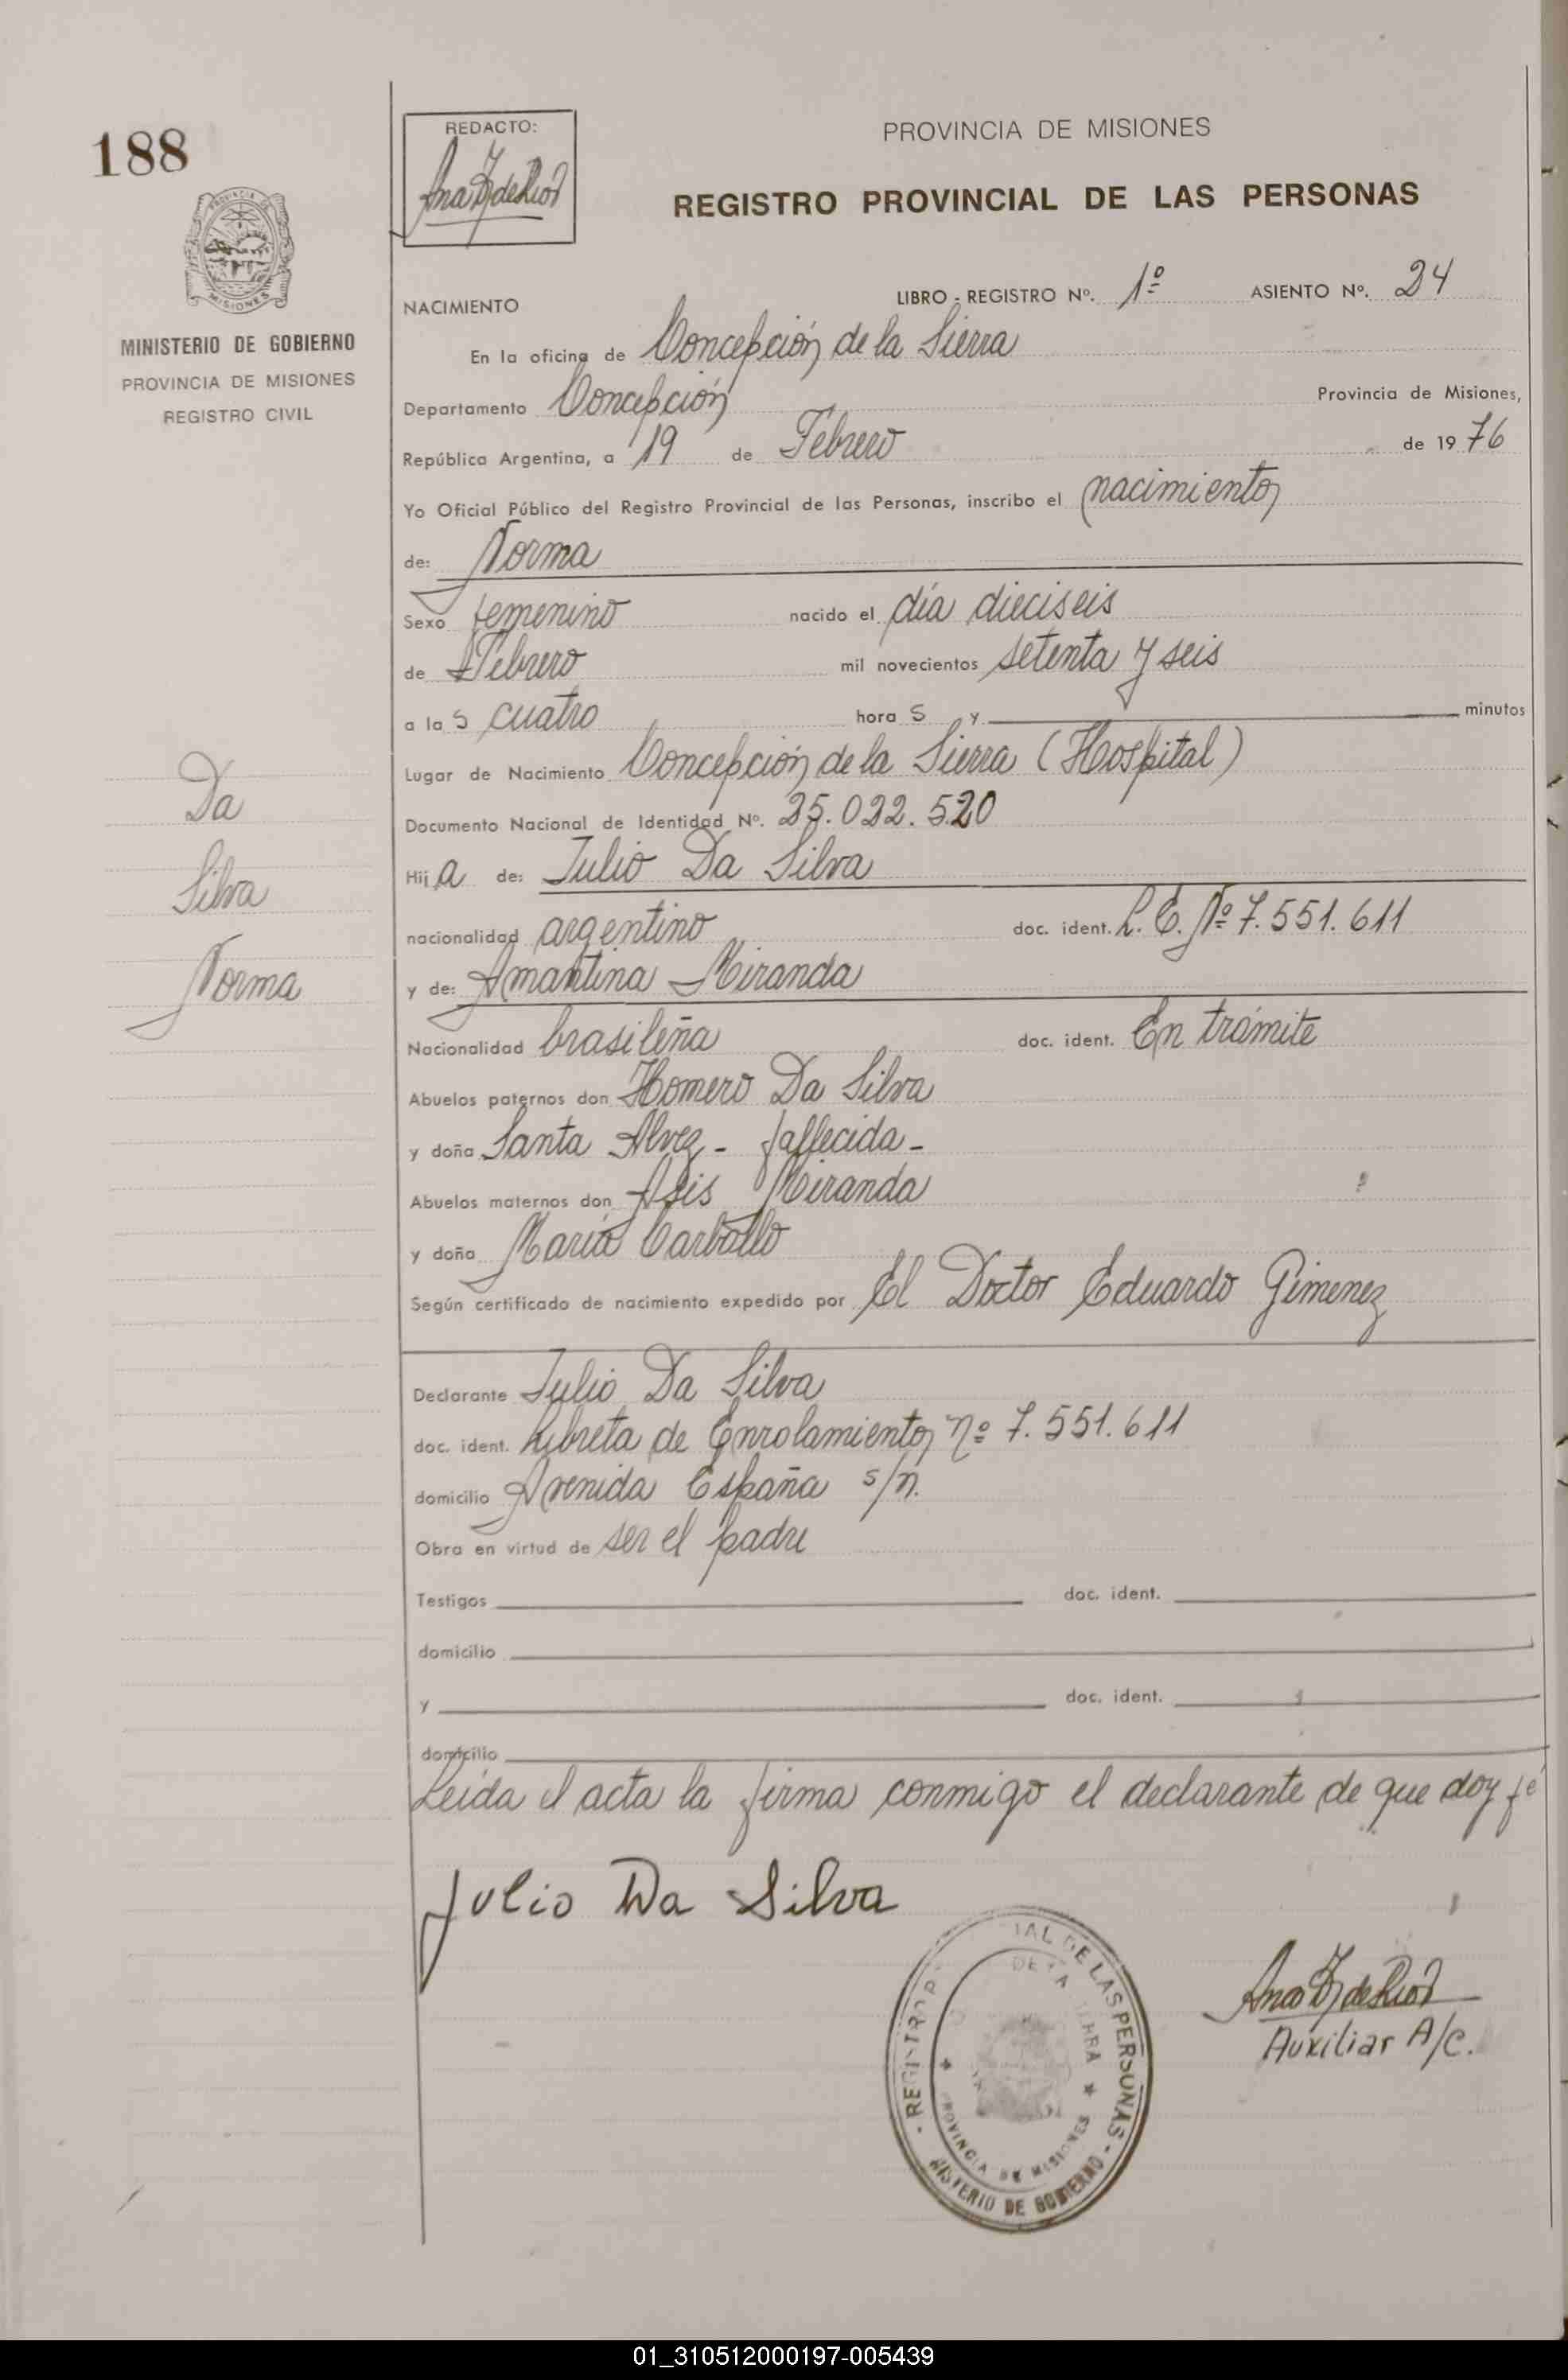 188
MINISTERIO DE GOBIERNO
PROVINCIA DE MISIONES
REGISTRO CIVIL
Da
Silva
Norma
REDACTO:
PROVINCIA DE MISIONES
REGISTRO PROVINCIAL DE LAS PERSONAS
NACIMIENTO LIBRO - REGISTRO Nº. 1º ASIENTO Nº. 24
En la oficina de Concepción de la Sierra
Departamento Concepción Provincia de Misiones,
República Argentina, a 19 de Febrero de 1976
Yo Oficial Público del Registro Provincial de las Personas, inscribo el nacimiento
de: Norma
Sexo femenino nacido el día dieciseis
de Febrero mil novecientos setenta y seis
a las cuatro horas y minutos
Lugar de Nacimiento Concepción de la Sierra (Hospital)
Documento Nacional de Identidad Nº. 25.022.520
Hija de: Julio Da Silva
nacionalidad argentino doc. ident. L.E. Nº 7.551.611
y de: Amantina Miranda
Nacionalidad brasileña doc. ident. En trámite
Abuelos paternos don Homero Da Silva
y doña Santa Alvez - fallecida -
Abuelos maternos don Asis Miranda
y doña María Carballo
Según certificado de nacimiento expedido por El Doctor Eduardo Gimenez
Declarante Julio Da Silva
doc. ident. Libreta de Enrolamiento nº 7.551.611
domicilio Avenida España s/n.
Obra en virtud de ser el padre
Testigos doc. ident.
domicilio
y doc. ident.
domicilio
Leída el acta la firma conmigo el declarante de que doy fé
Julio Da Silva
Auxiliar A/C.
DE LAS PERSONAS
PROVINCIA DE MISIONES
DE GOBIERNO
01_310512000197-005439